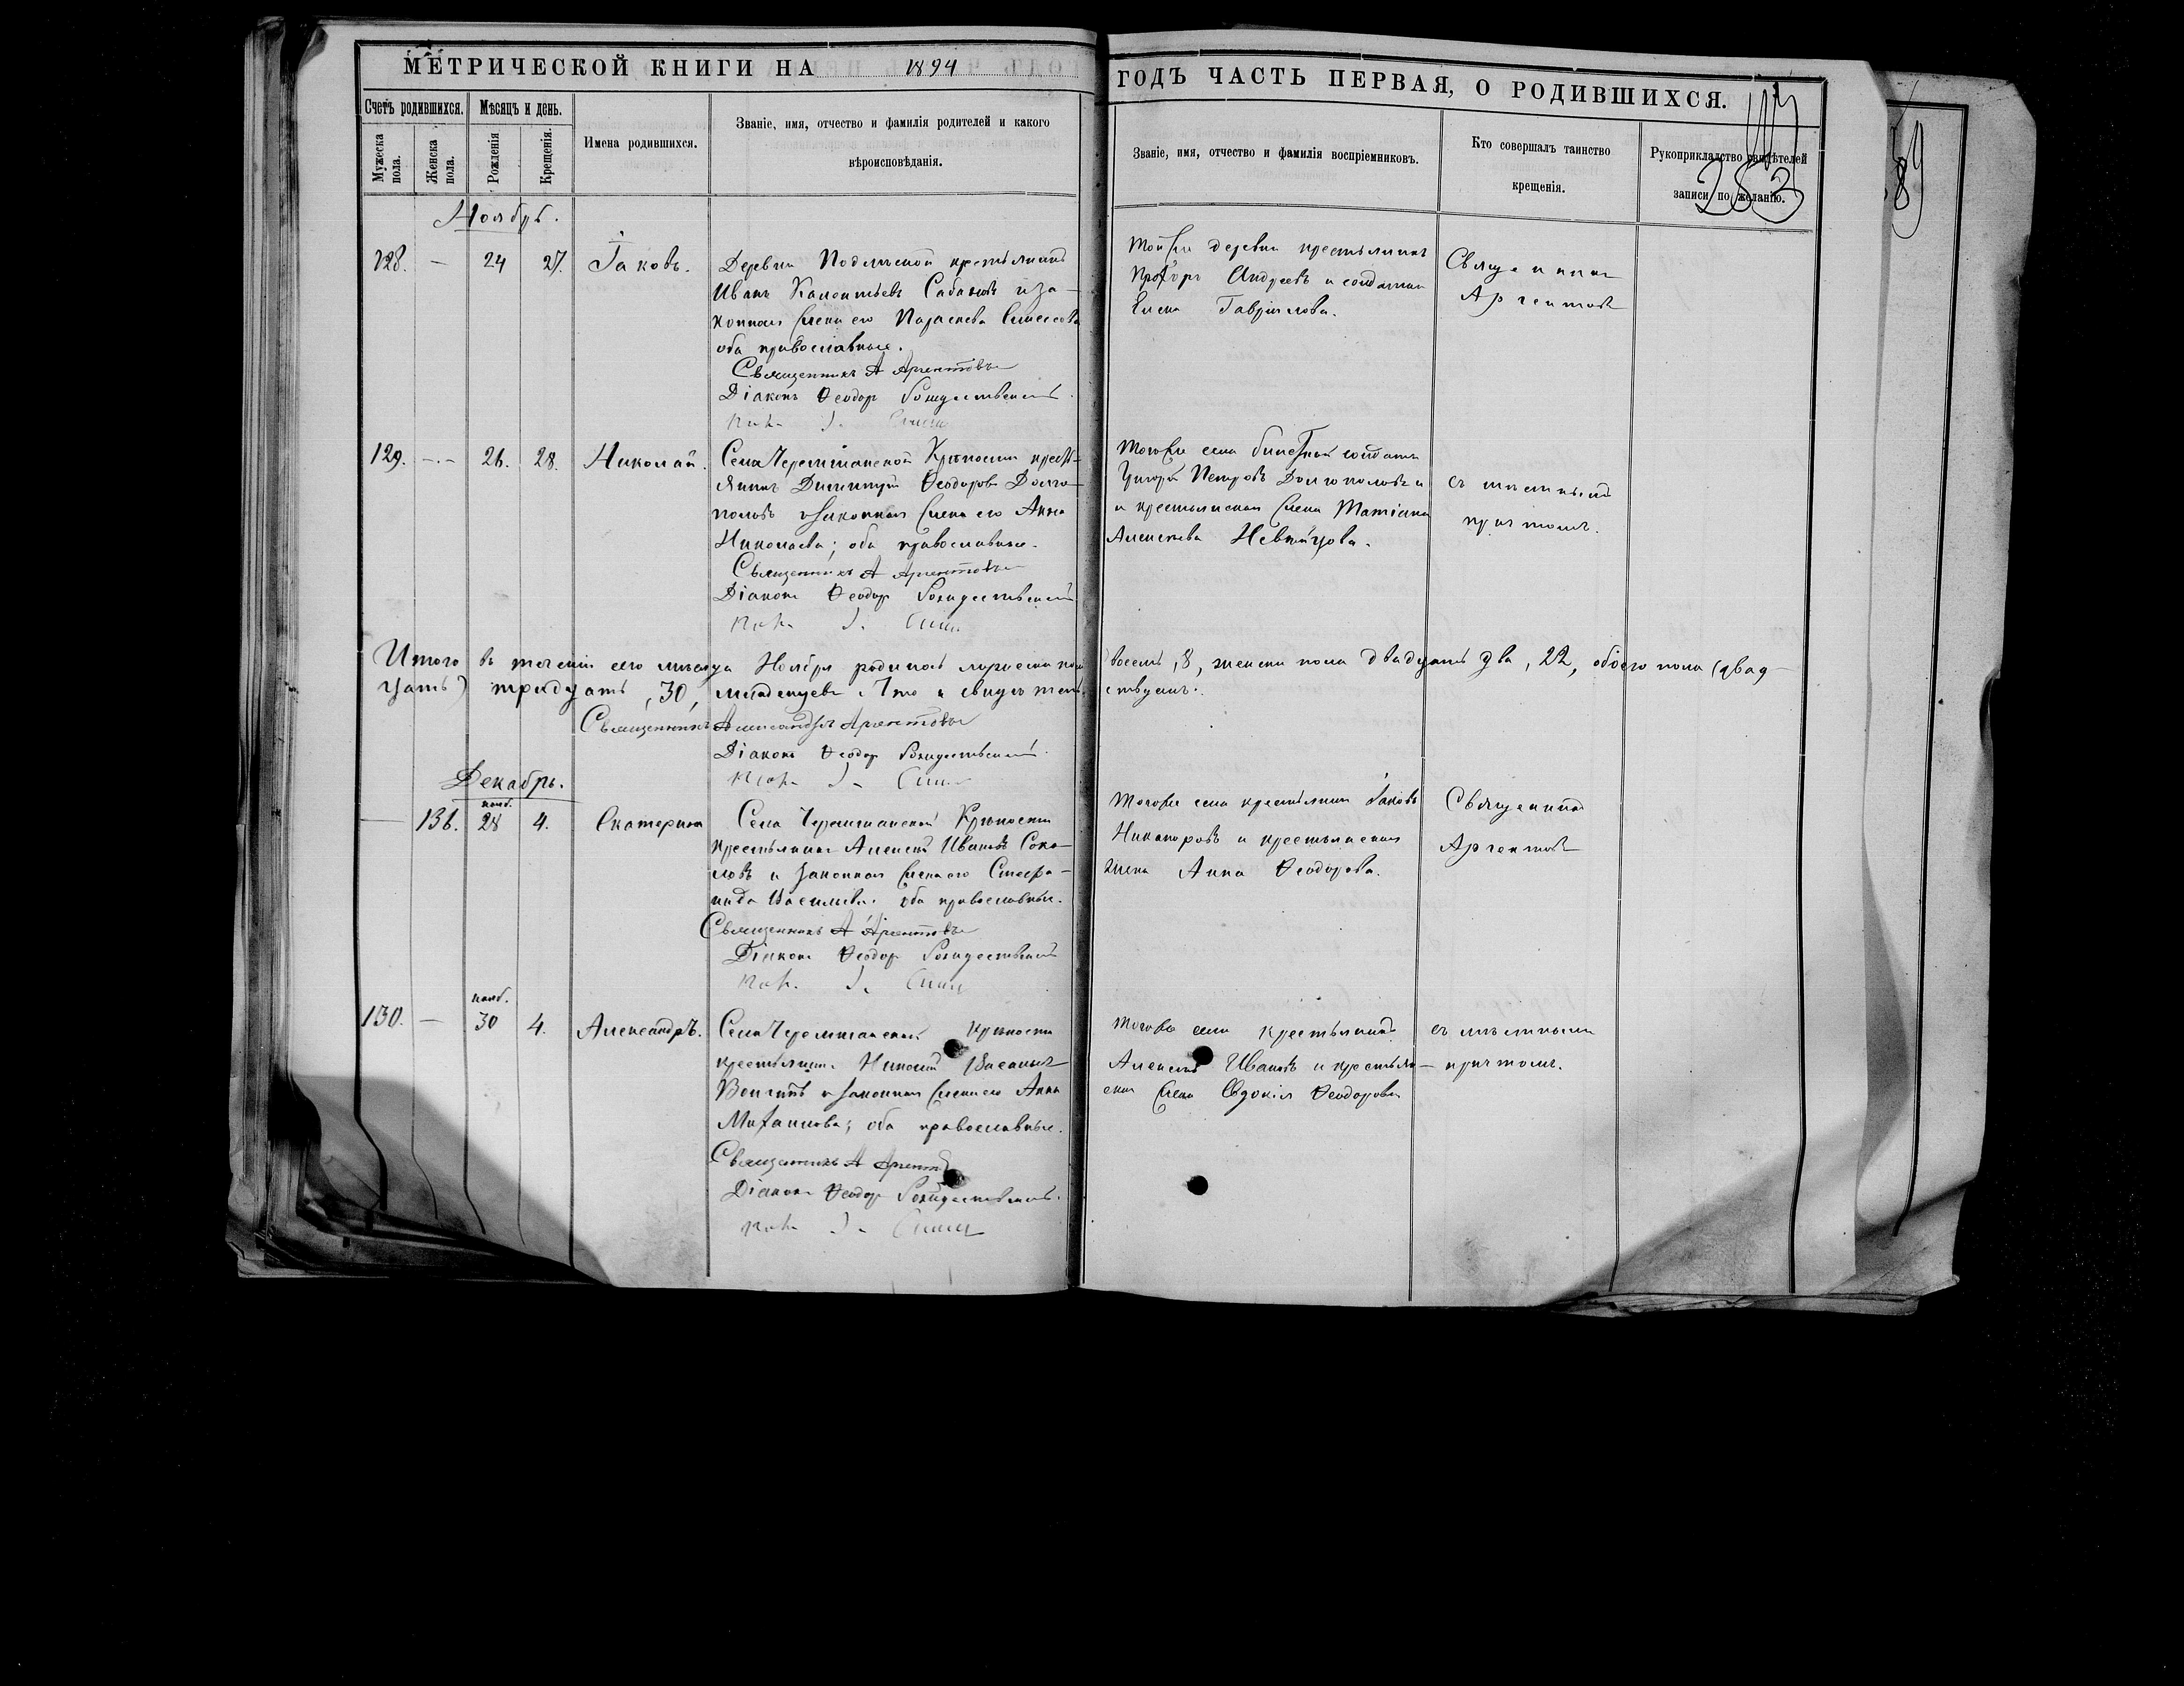 МЕТРИЧЕСКОЙ КНИГИ НА 1894
ГОДЪ ЧАСТЬ ПЕРВАЯ, О РОДИВШИХСЯ.
Счетъ родившихся.
Мѣсяцъ и день.
Мужеска пола.
Женска пола.
Рожденія
Крещенія.
Имена родившихся.
Званіе, имя, отчество и фамилія родителей и какого
вѣроисповѣданія.
Званіе, имя, отчество и фамилія воспріемниковъ.
Кто совершалъ таинство
крещенія.
Рукоприкладство свидѣтелей
записи по желанію.
253
89
Ноябрь.
128. — 24 27. Іаковъ.
Деревни крестьянинъ
Иванъ и за-
конная жена его Параскева
оба православные.
Священникъ А Аргентовъ
Діаконъ Ѳеодоръ Рождественскій
Той же деревни крестьянинъ
Андреевъ и
Елена Гавріилова.
Священникъ
Аргентовъ
129. — 26. 28. Николай.
Села Черемшанской Крѣпости крест-
янинъ Димитрій Ѳеодоровъ Долго-
половъ и законная жена его Анна
Николаева; оба православные.
Священникъ А Аргентовъ
Діаконъ Ѳеодоръ Рождественскій
Того же села билетный солдатъ
Григорій Петровъ Долгополовъ и
и крестьянская жена Татіана
Алексѣева
съ мѣстнымъ
причтомъ.
Итого въ теченіи сего мѣсяца Ноября родилось мужеска пола восемь, 8, женска пола двадцать два, 22, обоего пола (двад-
цать) тридцать, 30, младенцевъ Что и свидѣтельствуемъ.
Священникъ Александръ Аргентовъ
Діаконъ Ѳеодоръ Рождественскій
Декабрь.
— 136. нояб. 28 4. Екатерина
Села Черемшанской Крѣпости
крестьянинъ Алексѣй Ивановъ Соко-
ловъ и законная жена его Стефа-
нида Васильева. оба православные.
Священникъ А Аргентовъ
Діаконъ Ѳеодоръ Рождественскій
Того же села крестьянинъ Іаковъ
Никаноровъ и крестьянская
жена Анна Ѳеодорова.
Священникъ
Аргентовъ
130. — нояб. 30 4. Александръ.
Села Черемшанской Крѣпости
крестьянинъ Николай
и законная жена его Анна
Михаилова; оба православные.
Священникъ А Аргентовъ
Діаконъ Ѳеодоръ Рождественскій.
Того же села крестьянинъ
Алексѣй Ивановъ и крестьян-
ская жена Евдокія Ѳеодорова
съ мѣстнымъ
причтомъ.